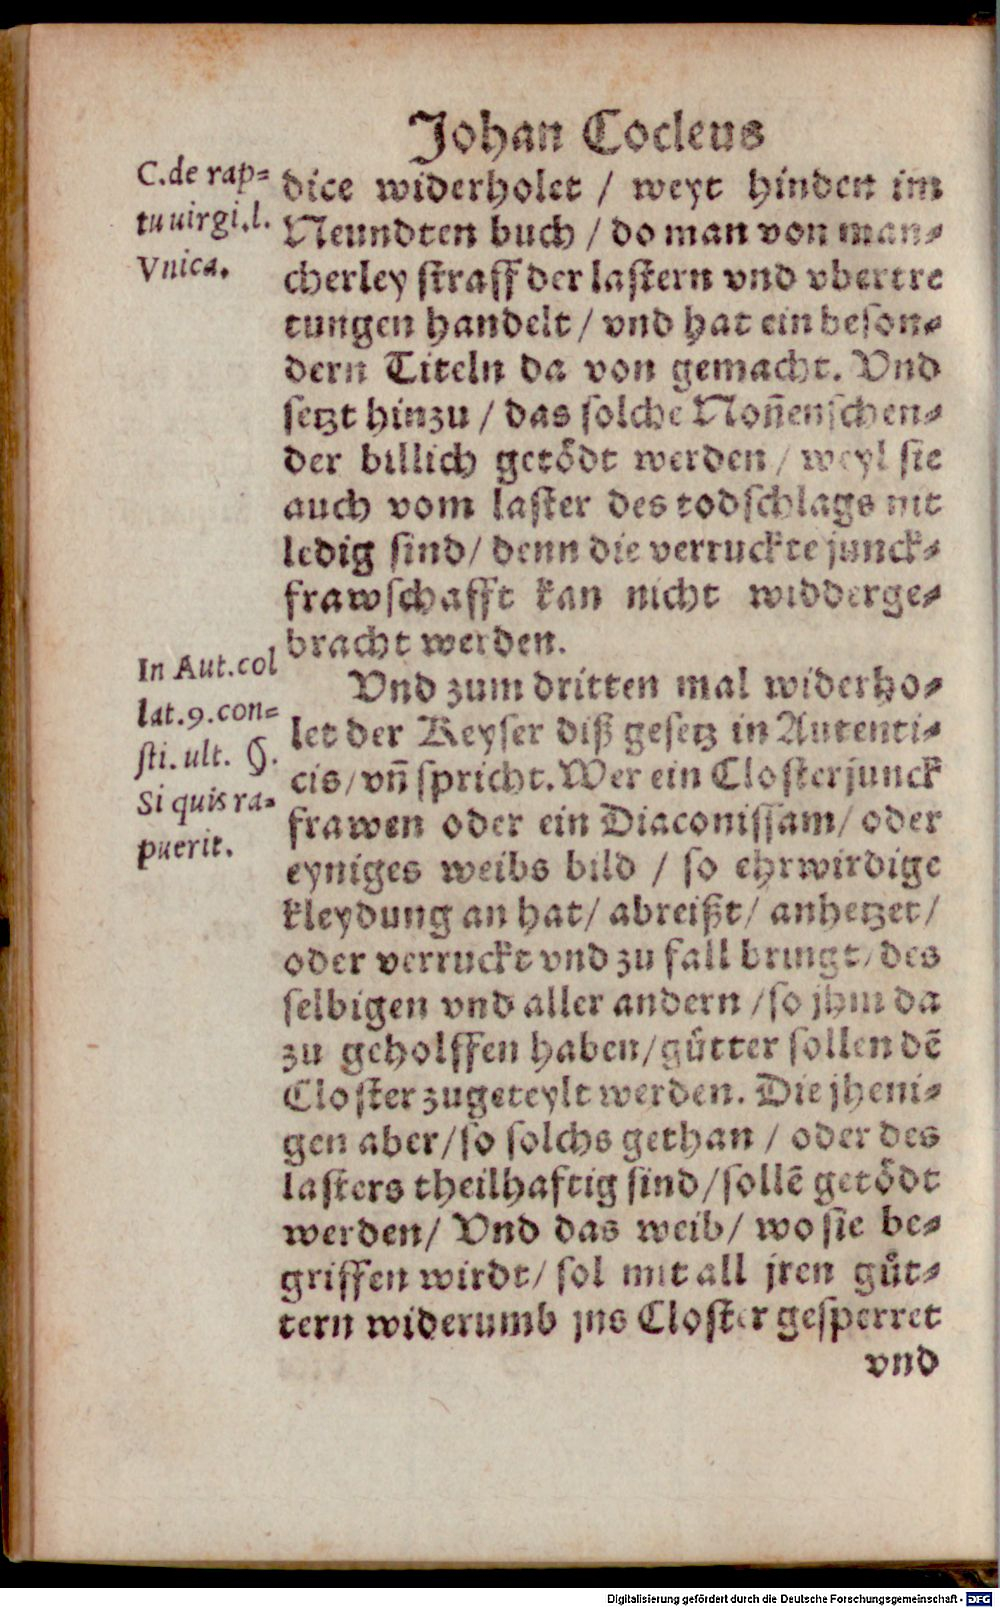 Johan Cocleus
C.de rap=
tu uirgi.l.
Vnica.
dice widerholet / weyt hinden im
Neundten buch / do man von man=
cherley straff der lastern vnd vbertre
tungen handelt / vnd hat ein beson=
dern Titeln da von gemacht. Vnd
setzt hinzu / das solche Non̄enschen=
der billich getödt werden / weyl sie
auch vom laster des todschlags nit
ledig sind / denn die verruckte junck=
frawschafft kan nicht widderge=
bracht werden.
In Aut.col
lat.9.con=
sti. ult. §.
Si quis ra=
puerit.
Vnd zum dritten mal widerho=
let der Keyser diß gesetz in Autenti=
cis / vn̄ spricht. Wer ein Closterjunck
frawen oder ein Diaconissam / oder
eyniges weibs bild / so ehrwirdige
kleydung an hat / abreißt / anhetzet /
oder verruckt vnd zu fall bringt / des
selbigen vnd aller andern / so jhm da
zu geholffen haben / gůtter sollen dē
Closter zugeteylt werden. Die jheni=
gen aber / so solchs gethan / oder des
lasters theilhaftig sind / sollē getödt
werden / Vnd das weib / wo sie be=
griffen wirdt / sol mit all jren gůt=
tern widerumb jns Closter gesperret
vnd
Digitalisierung gefördert durch die Deutsche Forschungsgemeinschaft - DFG